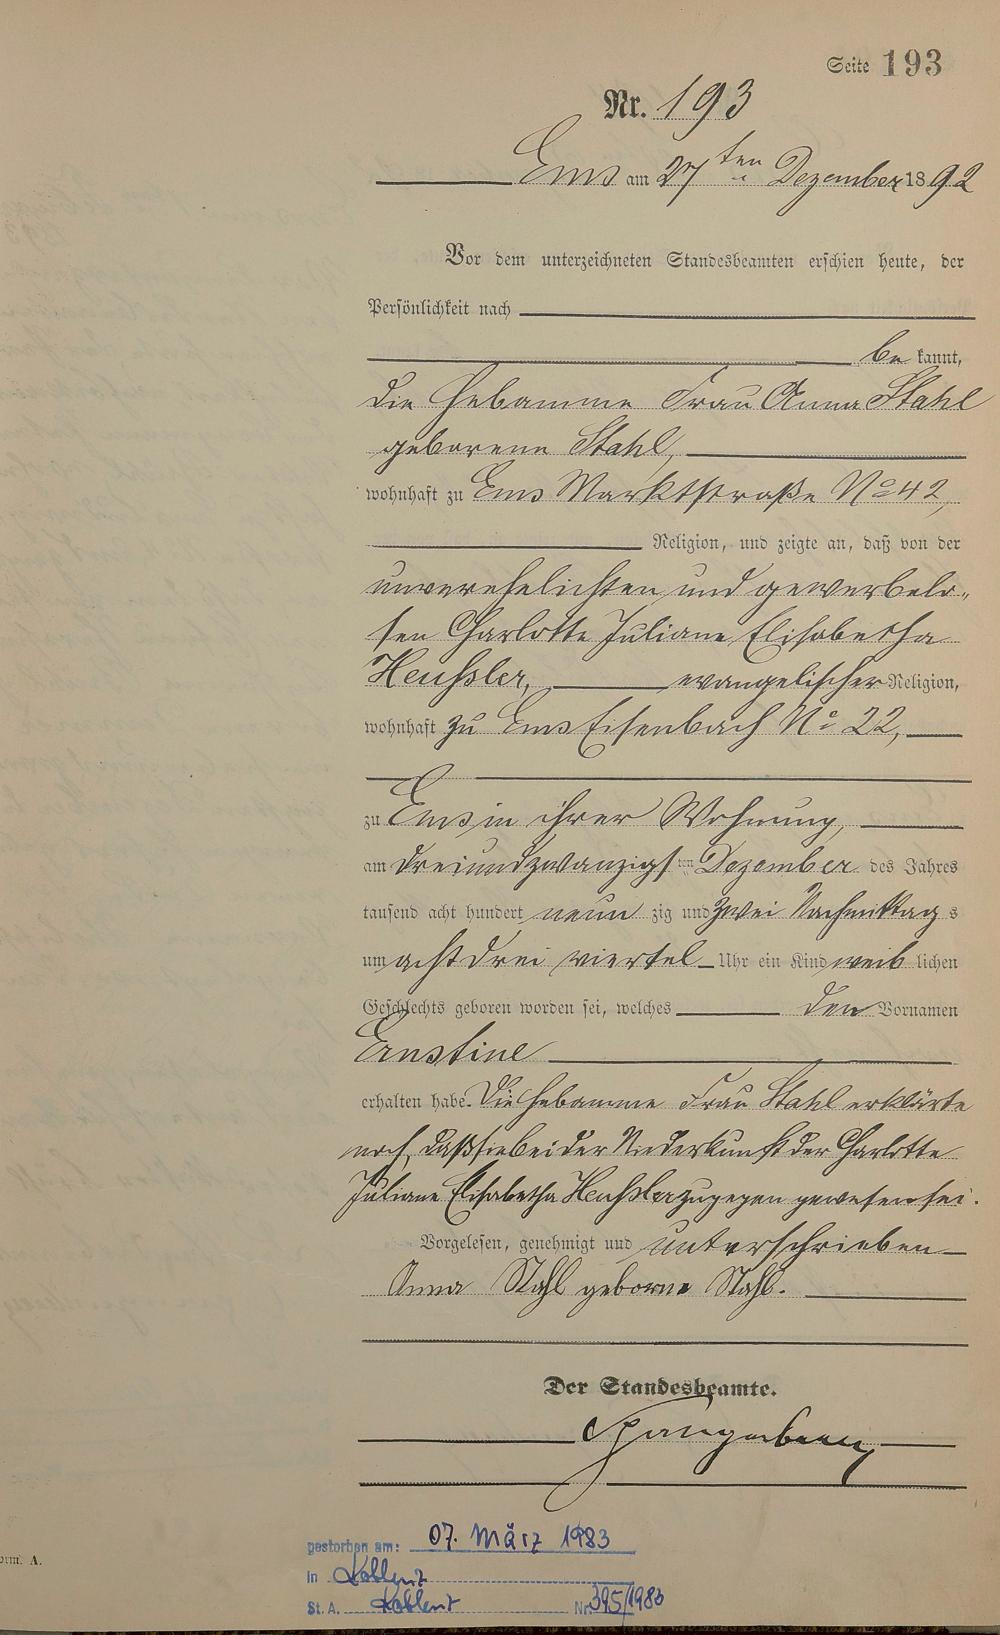 Seite 193
Nr. 193
Ems am 27ten Dezember 1892
Vor dem unterzeichneten Standesbeamten erschien heute, der
Persönlichkeit nach
be kannt,
die Hebamme Frau Anna Stahl
geborene Stahl,
wohnhaft zu Ems Marktstraße No 42,
Religion, und zeigte an, daß von der
unverehelichten und gewerbelo-
sen Charlotte Juliane Elisabetha
Heußler, evangelischer Religion,
wohnhaft zu Ems Eisenbach No 22,
zu Ems in ihrer Wohnung,
am dreiundzwanzigsten Dezember des Jahres
tausend acht hundert neun zig und zwei Nachmittag s
um acht drei viertel Uhr ein Kind weib lichen
Geschlechts geboren worden sei, welches den Vornamen
Ernstine
erhalten habe. Die Hebamme Frau Stahl erklärte
noch, daß sie bei der Niederkunft der Charlotte
Juliane Elisabetha Heußler zugegen gewesen sei.
Vorgelesen, genehmigt und unterschrieben
Anna Stahl geborne Stahl.
Der Standesbeamte.
Spangenberg
gestorben am: 07. März 1983
in Koblenz
St. A. Koblenz Nr. 395/1983
A.